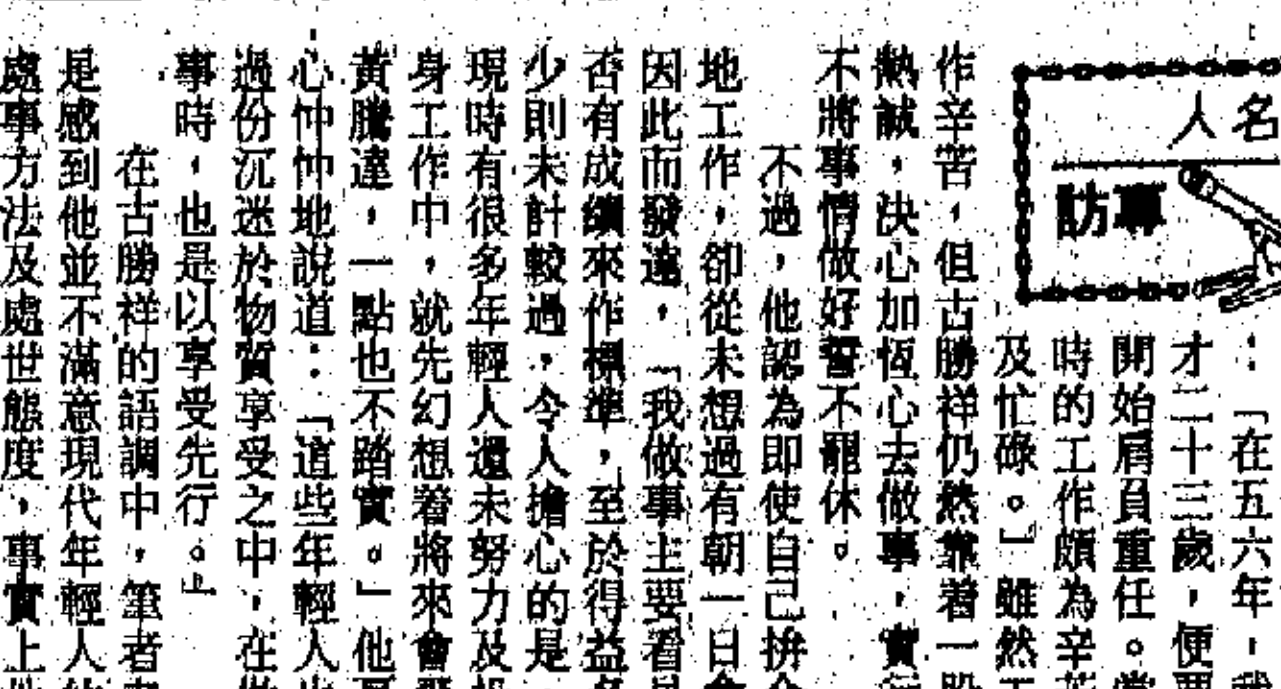 名人
專訪
：「在五六年，我
才二十三歲，便要
開始肩負重任。當
時的工作頗為辛苦
及忙碌。」雖然工
作辛苦，但古勝祥仍然靠着一股
熱誠，決心加恆心去做事，實行
不將事情做好誓不罷休。
不過，他認為即使自己拚命
地工作，卻從未想過有朝一日會
因此而發達，「我做事主要看是
否有成績來作標準，至於得益多
少則未計較過。令人擔心的是，
現時有很多年輕人還未努力及投
身工作中，就先幻想着將來會飛
黃騰達，一點也不踏實。」他
心忡忡地說道：「這些年輕人
過份沉迷於物質享受之中，在做
事時，也是以享受先行。」
在古勝祥的語調中，筆者
是感到他並不滿意現代年輕人的
處事方法及處世態度，事實上